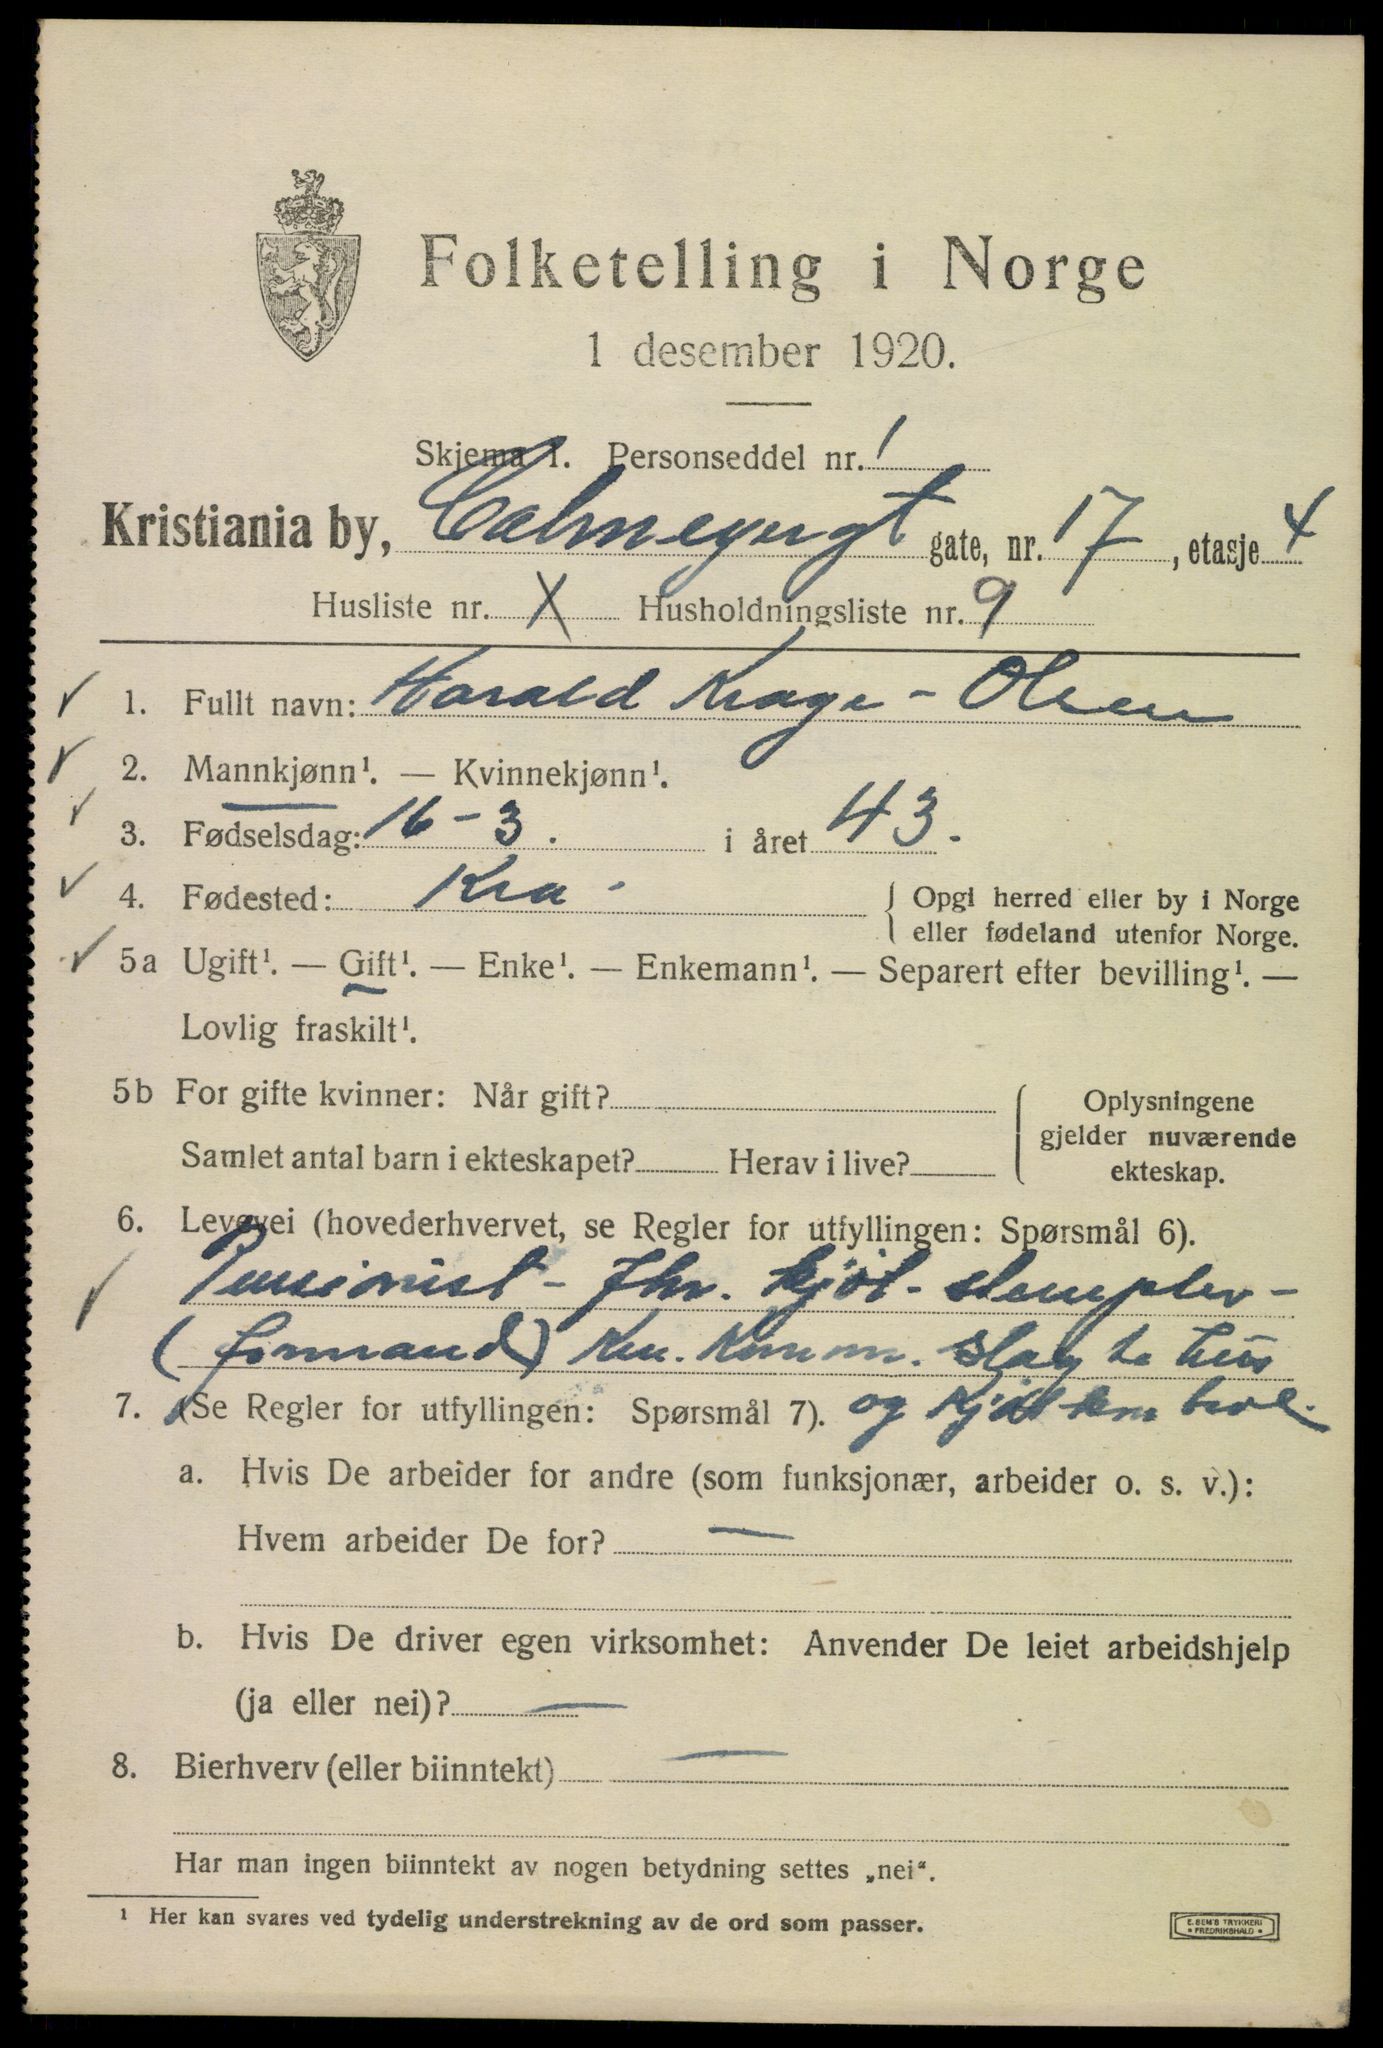 Folketelling i Norge
1 desember 1920.
Skjema 1. Personseddel nr. 1
Kristiania by, Calmeyergt gate, nr. 17, etasje 4
Husliste nr. X Husholdningsliste nr. 9
1. Fullt navn: Harald Krage - Olsen
2. Mannkjønn¹. — Kvinnekjønn¹.
3. Fødselsdag: 16 - 3. i året 43.
4. Fødested: Kra -
{ Opgi herred eller by i Norge
eller fødeland utenfor Norge.
5a Ugift¹. — Gift¹. — Enke¹. — Enkemann¹. — Separert efter bevilling¹. —
Lovlig fraskilt¹.
5b For gifte kvinner: Når gift?
Samlet antal barn i ekteskapet? Herav i live?
{ Oplysningene
gjelder nuværende
ekteskap.
6. Levevei (hovederhvervet, se Regler for utfyllingen: Spørsmål 6).
Pensionist - Fhv. kjøt - stempler -
(formand) Kra. Komm. Slagtehus
7. (Se Regler for utfyllingen: Spørsmål 7). og kjøtkontrol.
a. Hvis De arbeider for andre (som funksjonær, arbeider o. s. v.):
Hvem arbeider De for? —
b. Hvis De driver egen virksomhet: Anvender De leiet arbeidshjelp
(ja eller nei)? —
8. Bierhverv (eller biinntekt) —
Har man ingen biinntekt av nogen betydning settes „nei“.
¹ Her kan svares ved tydelig understrekning av de ord som passer.
E. SEM'S TRYKKERI
• FREDRIKSHALD •